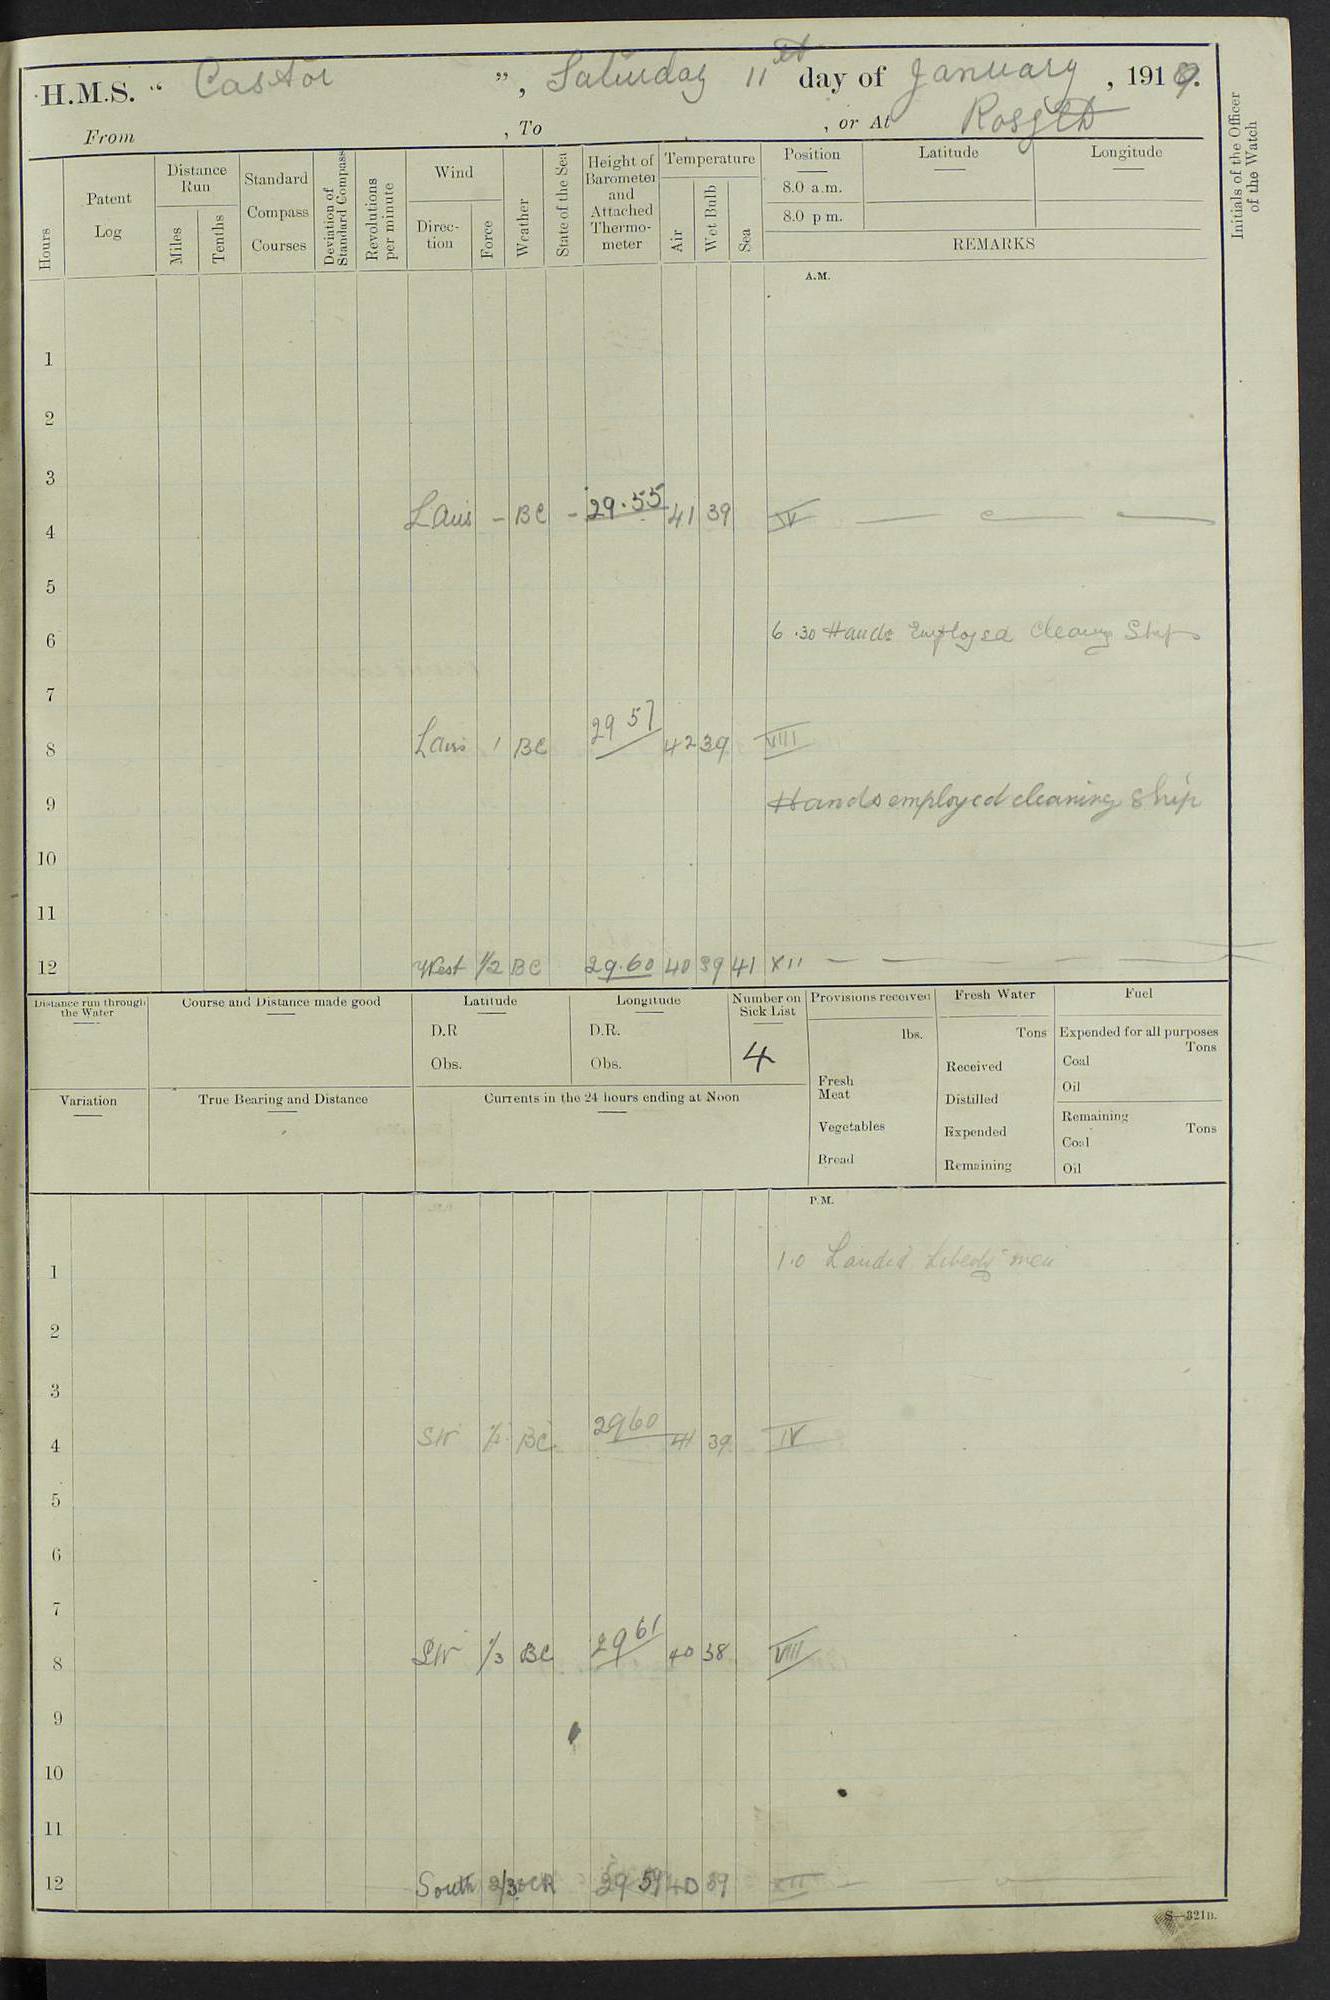 H.M.S. “ Castor ”, Saturday 11th day of January, 1919.
From , To , or At Rosyth
Hours
Patent Log
Distance Run
Miles
Tenths
Standard Compass Courses
Deviation of Standard Compass
Revolutions per minute
Wind
Direction
Force
Weather
State of the Sea
Height of Barometer and Attached Thermometer
Temperature
Air
Wet Bulb
Sea
Position
8.0 a.m.
8.0 p m.
Latitude
Longitude
REMARKS
Initials of the Officer of the Watch
A.M.
1
2
3
4 L Airs - BC - 29.55 41 39 IV
5
6 6.30 Hands Employed Cleaning Ship
7
8 L airs 1 BC 29 57 42 39 VIII
9 Hands employed cleaning ship
10
11
12 West 1/2 BC 29.60 40 39 41 XII
Distance run through the Water
Course and Distance made good
Latitude
D.R
Obs.
Longitude
D.R.
Obs.
Number on Sick List
4
Provisions received
lbs.
Fresh Meat
Vegetables
Bread
Fresh Water
Tons
Received
Distilled
Expended
Remaining
Fuel
Expended for all purposes
Tons
Coal
Oil
Remaining
Tons
Coal
Oil
Variation
True Bearing and Distance
Currents in the 24 hours ending at Noon
P.M.
1 1.0 Landed Liberty men
2
3
4 SW 1/2 BC 29 60 41 39 IV
5
6
7
8 SW 1/3 BC 29 61 40 38 VIII
9
10
11
12 South 2/3 29 59 40 39 XII
S—321D.